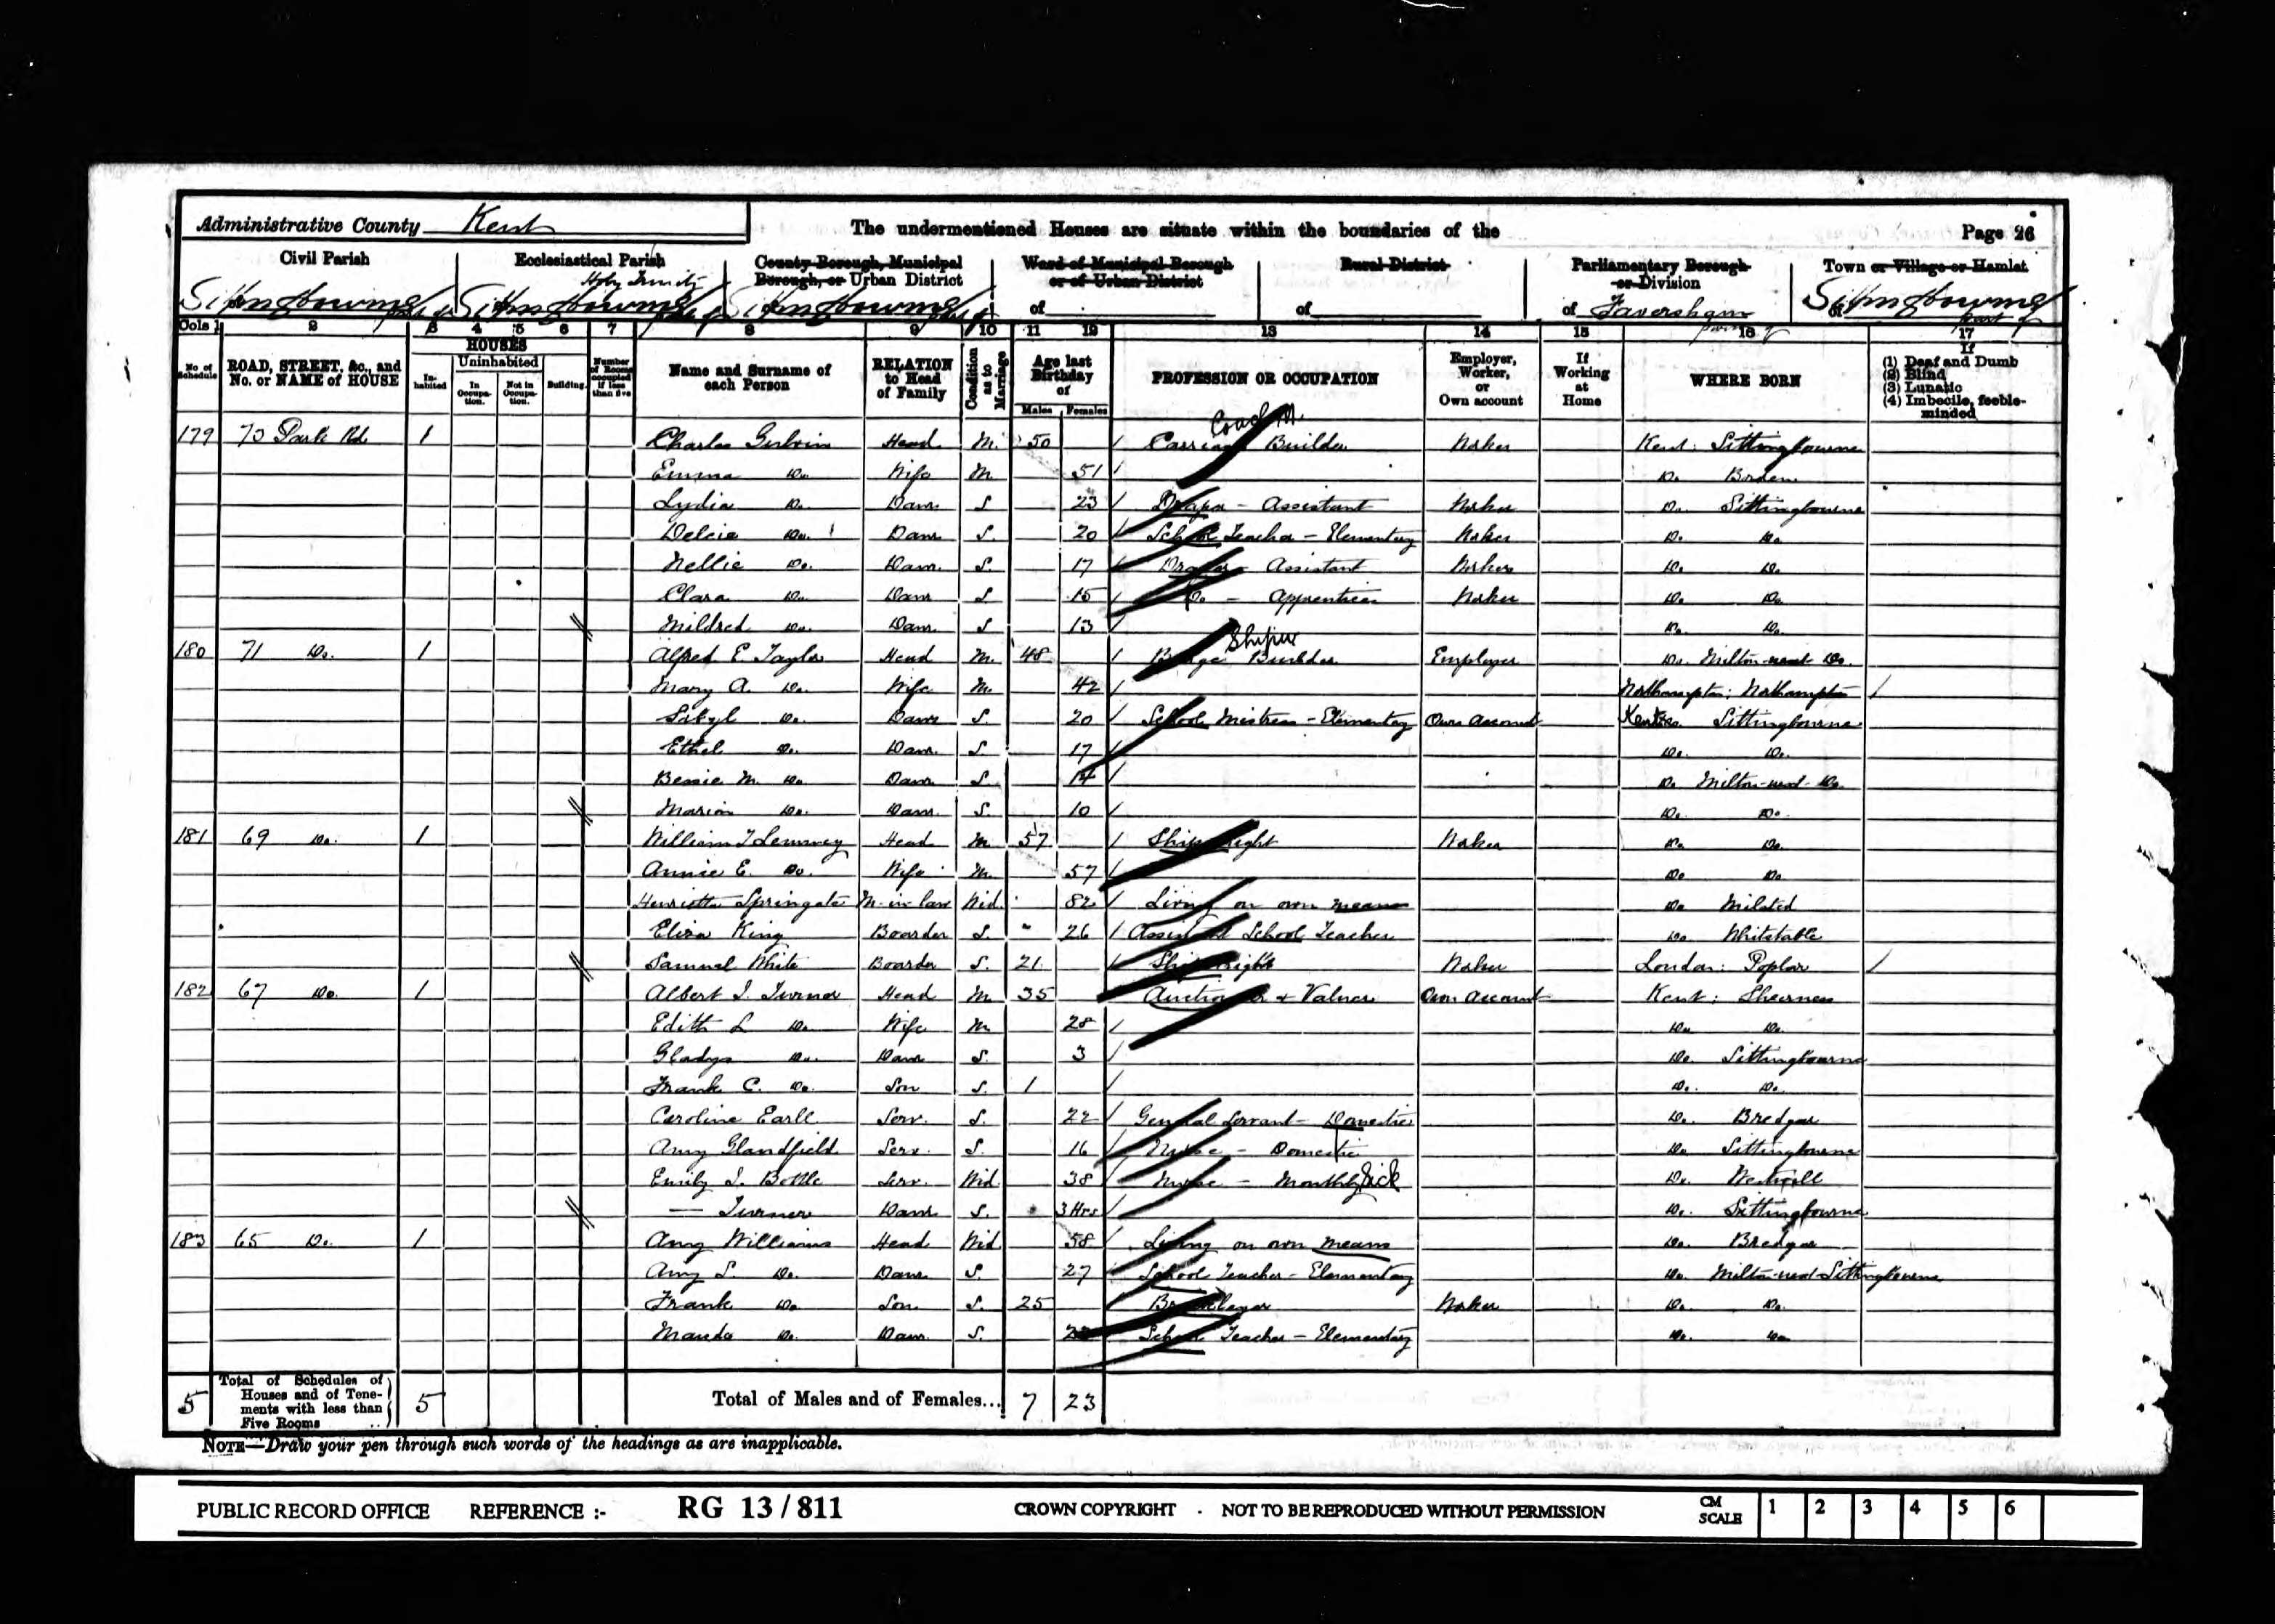 Administrative County Kent
The undermentioned Houses are situate within the boundaries of the
Page 26
Civil Parish
Ecclesiastical Parish
County Borough, Municipal Borough, or Urban District
Ward of Municipal Borough or of Urban District
Rural District
Parliamentary Borough or Division
Town or Village or Hamlet
Sittingbourne part of
Holy Trinity
Sittingbourne part of
Sittingbourne part of
of
of
of Faversham
of Sittingbourne part of
Cols 1 2 3 4 5 6 7 8 9 10 11 12 13 14 15 16 17
No of Schedule
ROAD, STREET, &c., and No. or NAME of HOUSE
HOUSES
Inhabited
Uninhabited
In Occupation.
Not in Occupation.
Building.
Number of Rooms occupied if less than five
Name and Surname of each Person
RELATION to Head of Family
Condition as to Marriage
Age last Birthday of
Males Females
PROFESSION OR OCCUPATION
Employer, Worker, or Own account
If Working at Home
WHERE BORN
If
(1) Deaf and Dumb
(2) Blind
(3) Lunatic
(4) Imbecile, feeble-minded
179 73 Park Rd 1 Charles Head M. 50 Carriage Builder Coach M. Worker Kent: Sittingbourne
Emma Do. Wife M 51 Do. Borden
Lydia Do. Daur. S 23 Draper - Assistant Worker Do. Sittingbourne
Delcie Do. Daur S. 20 School Teacher - Elementary Worker Do. Do.
Nellie Do. Daur. S. 17 Draper - Assistant Worker Do. Do.
Clara Do. Daur S 15 Do - Apprentice Worker Do. Do.
Mildred Do. Daur. S 13 Do. Do.
180 71 Do. 1 Alfred E Taylor Head M. 48 Barge Builder Employer Do. Milton-next-Do.
Mary A. Do. Wife M. 42 Northampton: Northampton
Sibyl Do. Daur S. 20 School Mistress - Elementary Own Account Kent Sittingbourne
Ethel Do. Daur. S 17 Do. Do.
Bessie M. Do Daur. S. 14 Do. Milton-next-Do.
Marion Do. Daur. S. 10 Do. Do.
181 69 Do. 1 William T Head M 57 Shipwright Worker Do. Do.
Annie E. Do. Wife M. 57 Do Do.
Henrietta Springate M-in-law Wid 82 Living on own means Do Milsted
Eliza King Boarder S. 26 Assistant School Teacher Do. Whitstable
Samuel White Boarder S. 21 Shipwright Worker London: Poplar
182 67 Do. 1 Albert J. Turner Head M 35 Auctioneer & Valuer Own Account Kent: Sheerness
Edith L Do. Wife M 28 Do. Do.
Gladys Do. Daur S. 3 Do. Sittingbourne
Frank C. Do. Son S. 1 Do. Do.
Caroline Earll Serv. S. 22 General Servant - Domestic Do. Bredgar
Amy Glandfield Serv. S. 16 Nurse - Domestic Do. Sittingbourne
Emily J. Bottle Serv. Wid 38 Nurse - Monthly Sick Do. Westwell
— Turner Daur. S. 3 Hrs Do. Sittingbourne
183 65 Do. 1 Amy Williams Head Wid 58 Living on own means Do. Bredgar
Amy S. Do. Daur. S. 27 School Teacher - Elementary Do. Milton-next-Sittingbourne
Frank Do Son S. 25 Bricklayer Worker Do. Do.
Maude Do. Daur. S. School Teacher - Elementary Do. Do
5
Total of Schedules of Houses and of Tenements with less than Five Rooms
5
Total of Males and of Females... 7 23
NOTE—Draw your pen through such words of the headings as are inapplicable.
PUBLIC RECORD OFFICE REFERENCE :- RG 13/811 CROWN COPYRIGHT . NOT TO BE REPRODUCED WITHOUT PERMISSION CM SCALE 1 2 3 4 5 6